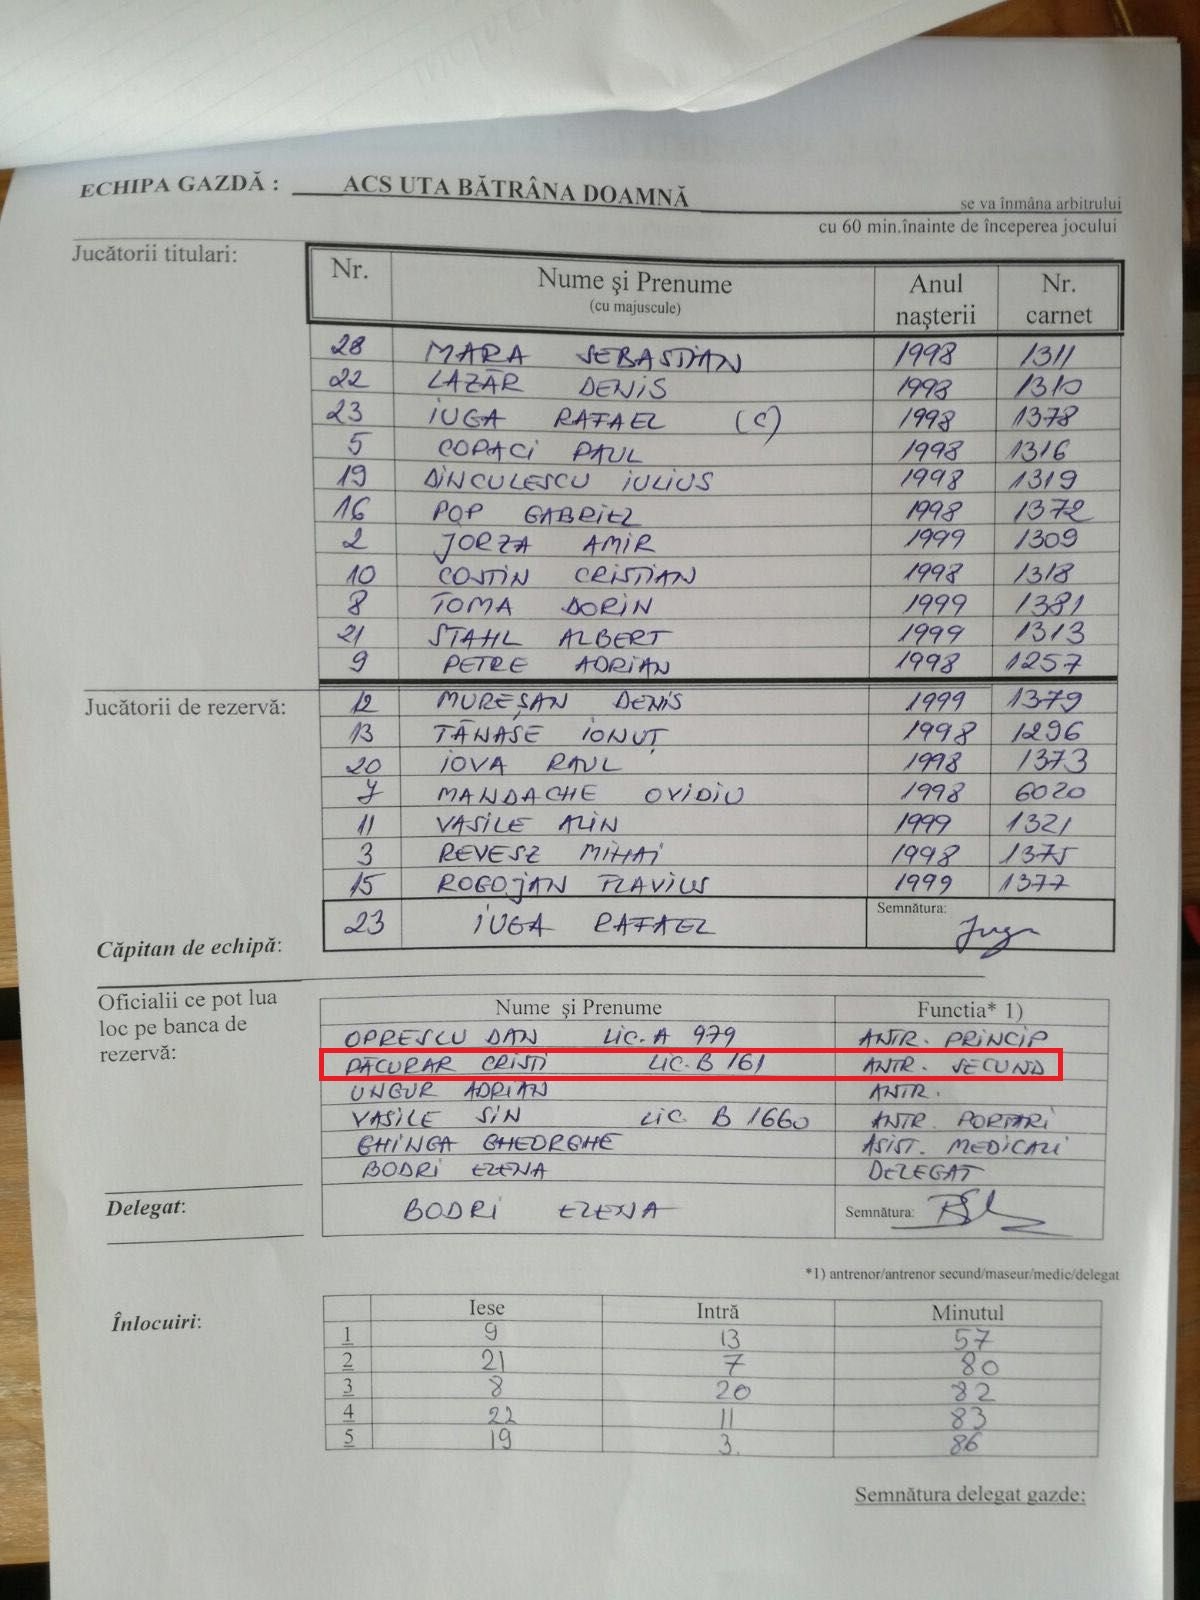 ECHIPA GAZDĂ : ACS UTA BĂTRÂNA DOAMNĂ
se va înmâna arbitrului
cu 60 min.înainte de începerea jocului
Jucătorii titulari:
Nr. Nume şi Prenume (cu majuscule) Anul naşterii Nr. carnet
28 MARA SEBASTIAN 1998 1311
22 LAZĂR DENIS 1998 1310
23 IUGA RAFAEL (C) 1998 1378
5 COPACI PAUL 1998 1316
19 DINCULESCU IULIUS 1998 1319
16 POP GABRIEL 1998 1372
2 JORZA AMIR 1999 1309
10 COSTIN CRISTIAN 1998 1318
8 TOMA DORIN 1999 1381
21 STAHL ALBERT 1999 1313
9 PETRE ADRIAN 1998 1257
Jucătorii de rezervă:
12 MUREȘAN DENIS 1999 1379
13 TĂNASE IONUȚ 1998 1296
20 IOVA RAUL 1998 1373
7 MANDACHE OVIDIU 1998 6020
11 VASILE ALIN 1999 1321
3 REVESZ MIHAI 1998 1375
15 ROGOJAN FLAVIUS 1999 1377
Căpitan de echipă: 23 IUGA RAFAEL Semnătura: Iuga
Oficialii ce pot lua loc pe banca de rezervă:
Nume şi Prenume Functia* 1)
OPRESCU DAN LIC. A 979 ANTR. PRINCIP
PĂCURAR CRISTI LIC. B 161 ANTR. SECUND
UNGUR ADRIAN ANTR.
VASILE SIN LIC B 1660 ANTR. PORTARI
GHINGA GHEORGHE ASIST. MEDICALI
BODRI ELENA DELEGAT
Delegat: BODRI ELENA Semnătura:
*1) antrenor/antrenor secund/maseur/medic/delegat
Înlocuiri:
Iese Intră Minutul
1 9 13 57
2 21 7 80
3 8 20 82
4 22 11 83
5 19 3. 86
Semnătura delegat gazde: